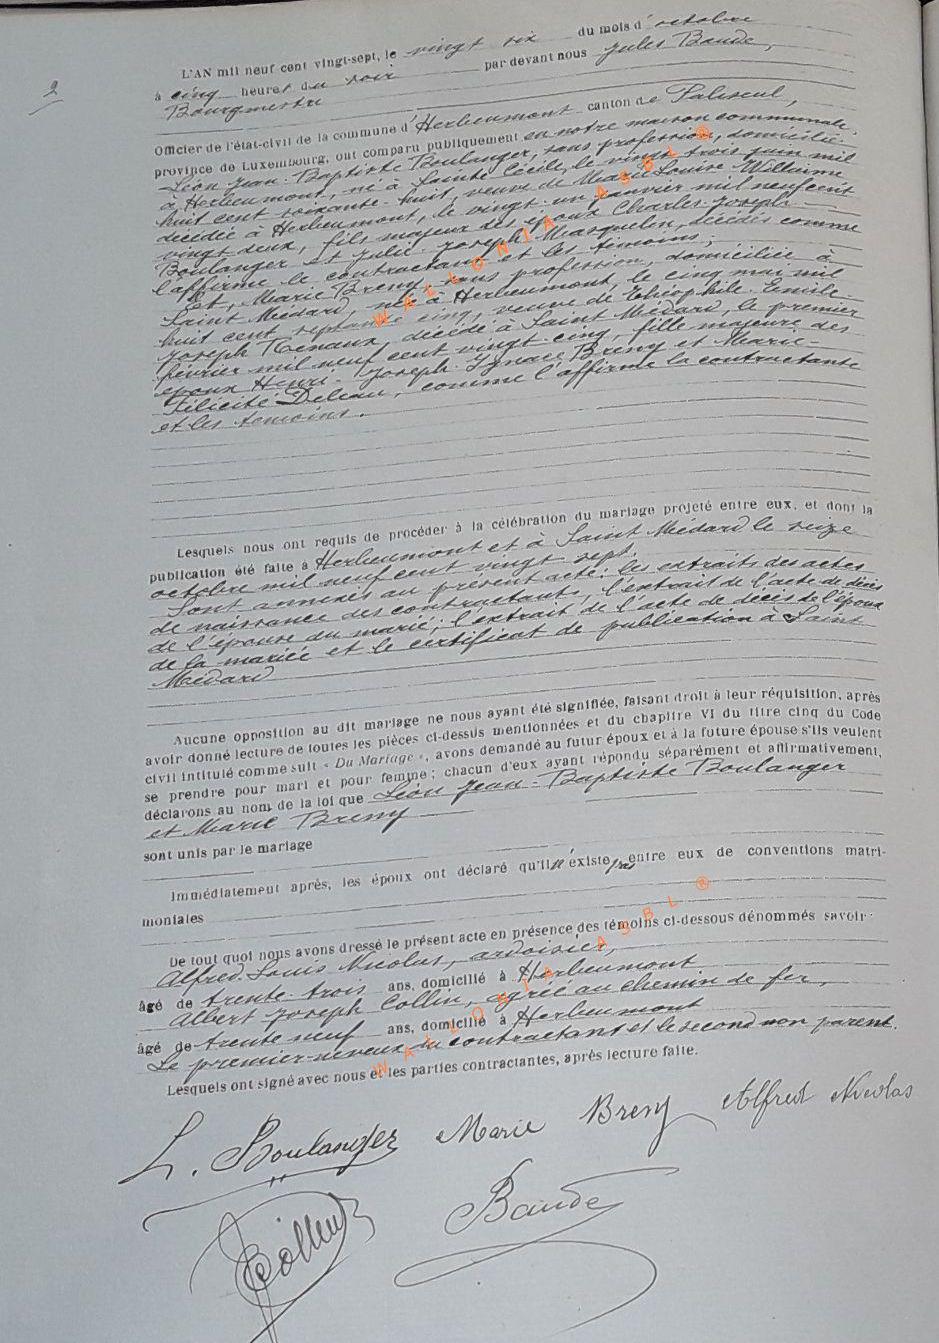 2
L'AN mil neuf cent vingt-sept, le vingt six du mois d'octobre
à cinq heures du soir par devant nous Jules Baude,
Bourgmestre
Officier de l'état-civil de la commune d'Herbeumont canton de Paliseul,
province de Luxembourg, ont comparu publiquement en notre maison communale.
Léon Jean-Baptiste Boulanger, sans profession, domicilié
à Herbeumont, né à Sainte Cécile, le vingt trois juin mil
huit cent soixante-huit, veuf de Marie Louise Willaime
décédée à Herbeumont, le vingt-un janvier mil neuf cent
vingt deux, fils majeur des époux Charles-Joseph
Boulanger et Julie Joseph Marquelen, décédés comme
l'affirme le contractant et les témoins;
Et, Marie Breny, sans profession, domiciliée à
Saint Médard, née à Herbeumont, le cinq mai mil
huit cent septante cinq, veuve de Théophile-Emile-
Joseph Renaux, décédé à Saint Médard, le premier
février mil neuf cent vingt-cinq, fille majeure des
époux Henri-Joseph Ignace Breny et Marie-
Félicité Deleau, comme l'affirme la contractante
et les témoins.
Lesquels nous ont requis de procéder à la célébration du mariage projeté entre eux, et dont la
publication été faite à Herbeumont et à Saint Médard le seize
octobre mil neuf cent vingt sept.
Sont annexés au présent acte: les extraits des actes
de naissance des contractants, l'extrait de l'acte de décès
de l'épouse du marié; l'extrait de l'acte de décès de l'époux
de la mariée et le certificat de publication à Saint
Médard
Aucune opposition au dit mariage ne nous ayant été signifiée, faisant droit à leur réquisition, après
avoir donné lecture de toutes les pièces ci-dessus mentionnées et du chapitre VI du titre cinq du Code
civil intitulé comme suit « Du Mariage », avons demandé au futur époux et à la future épouse s'ils veulent
se prendre pour mari et pour femme; chacun d'eux ayant répondu séparément et affirmativement,
déclarons au nom de la loi que Léon Jean-Baptiste Boulanger
et Marie Breny
sont unis par le mariage
Immédiatement après, les époux ont déclaré qu'il n'existe pas entre eux de conventions matri-
moniales
De tout quoi nous avons dressé le présent acte en présence des témoins ci-dessous dénommés savoir:
Alfred Louis Nicolas, ardoisier,
âgé de trente trois ans, domicilié à Herbeumont
Albert Joseph Collin, agréé au chemin de fer,
âgé de trente neuf ans, domicilié à Herbeumont
Le premier-neveux du contractant et le second non parent.
Lesquels ont signé avec nous et les parties contractantes, après lecture faite.
L. Boulanger Marie Breny Alfred Nicolas
Collin Baude
WALLONIA ASBL ®
WALLONIA ASBL ®